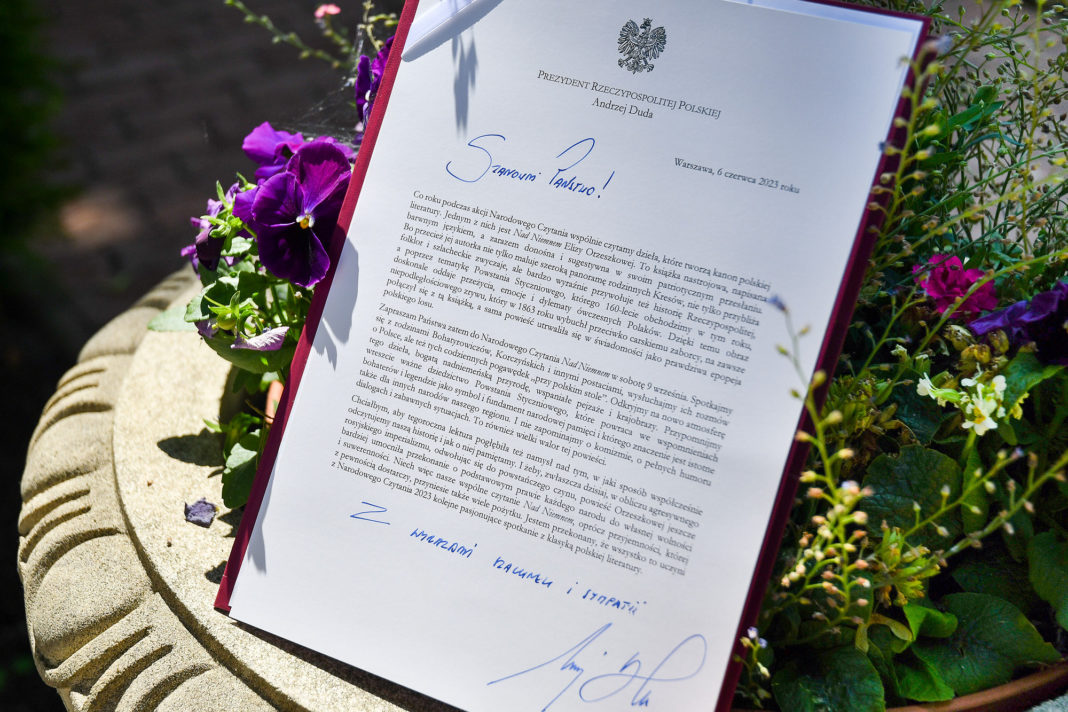 Prezydent Rzeczypospolitej Polskiej
Andrzej Duda
Warszawa, 6 czerwca 2023 roku
Szanowni Państwo!
Co roku podczas akcji Narodowego Czytania wspólnie czytamy dzieła, które tworzą kanon polskiej
literatury. Jednym z nich jest Nad Niemnem Elizy Orzeszkowej. To książka nastrojowa, napisana
barwnym językiem, a zarazem donośna i sugestywna w swoim patriotycznym przesłaniu.
Bo przecież jej autorka nie tylko maluje szeroką panoramę rodzinnych Kresów, nie tylko przybliża
folklor i szlacheckie zwyczaje, ale bardzo wyraźnie przywołuje też historię Rzeczypospolitej,
a poprzez tematykę Powstania Styczniowego, którego 160-lecie obchodzimy w tym roku,
doskonale oddaje przeżycia, emocje i dylematy ówczesnych Polaków. Dzięki temu obraz
niepodległościowego zrywu, który w 1863 roku wybuchł przeciwko carskiemu zaborcy, na zawsze
połączył się z tą książką, a sama powieść utrwaliła się w świadomości jako prawdziwa epopeja
polskiego losu.
Zapraszam Państwa zatem do Narodowego Czytania Nad Niemnem w sobotę 9 września. Spotkajmy
się z rodzinami Bohatyrowiczów, Korczyńskich i innymi postaciami, wysłuchajmy ich rozmów
o Polsce, ale też tych codziennych pogawędek „przy polskim stole”. Odkryjmy na nowo atmosferę
tego dzieła, bogatą nadniemeńską przyrodę, wspaniałe pejzaże i krajobrazy. Przypomnijmy
wreszcie ważne dziedzictwo Powstania Styczniowego, które powraca we wspomnieniach
bohaterów i legendzie jako symbol i fundament narodowej pamięci i którego znaczenie jest istotne
także dla innych narodów naszego regionu. I nie zapominajmy o komizmie, o pełnych humoru
dialogach i zabawnych sytuacjach. To również wielki walor tej powieści.
Chciałbym, aby tegoroczna lektura pogłębiła też namysł nad tym, w jaki sposób współcześnie
odczytujemy naszą historię i jak o niej pamiętamy. I żeby, zwłaszcza dzisiaj, w obliczu agresywnego
rosyjskiego imperializmu, odwołując się do powstańczego czynu, powieść Orzeszkowej jeszcze
bardziej umocniła przekonanie o podstawowym prawie każdego narodu do własnej wolności
i suwerenności. Niech więc nasze wspólne czytanie Nad Niemnem, oprócz przyjemności, której
z pewnością dostarczy, przyniesie także wiele pożytku. Jestem przekonany, że wszystko to uczyni
z Narodowego Czytania 2023 kolejne pasjonujące spotkanie z klasyką polskiej literatury.
Z
wyrazami szacunku i sympatii